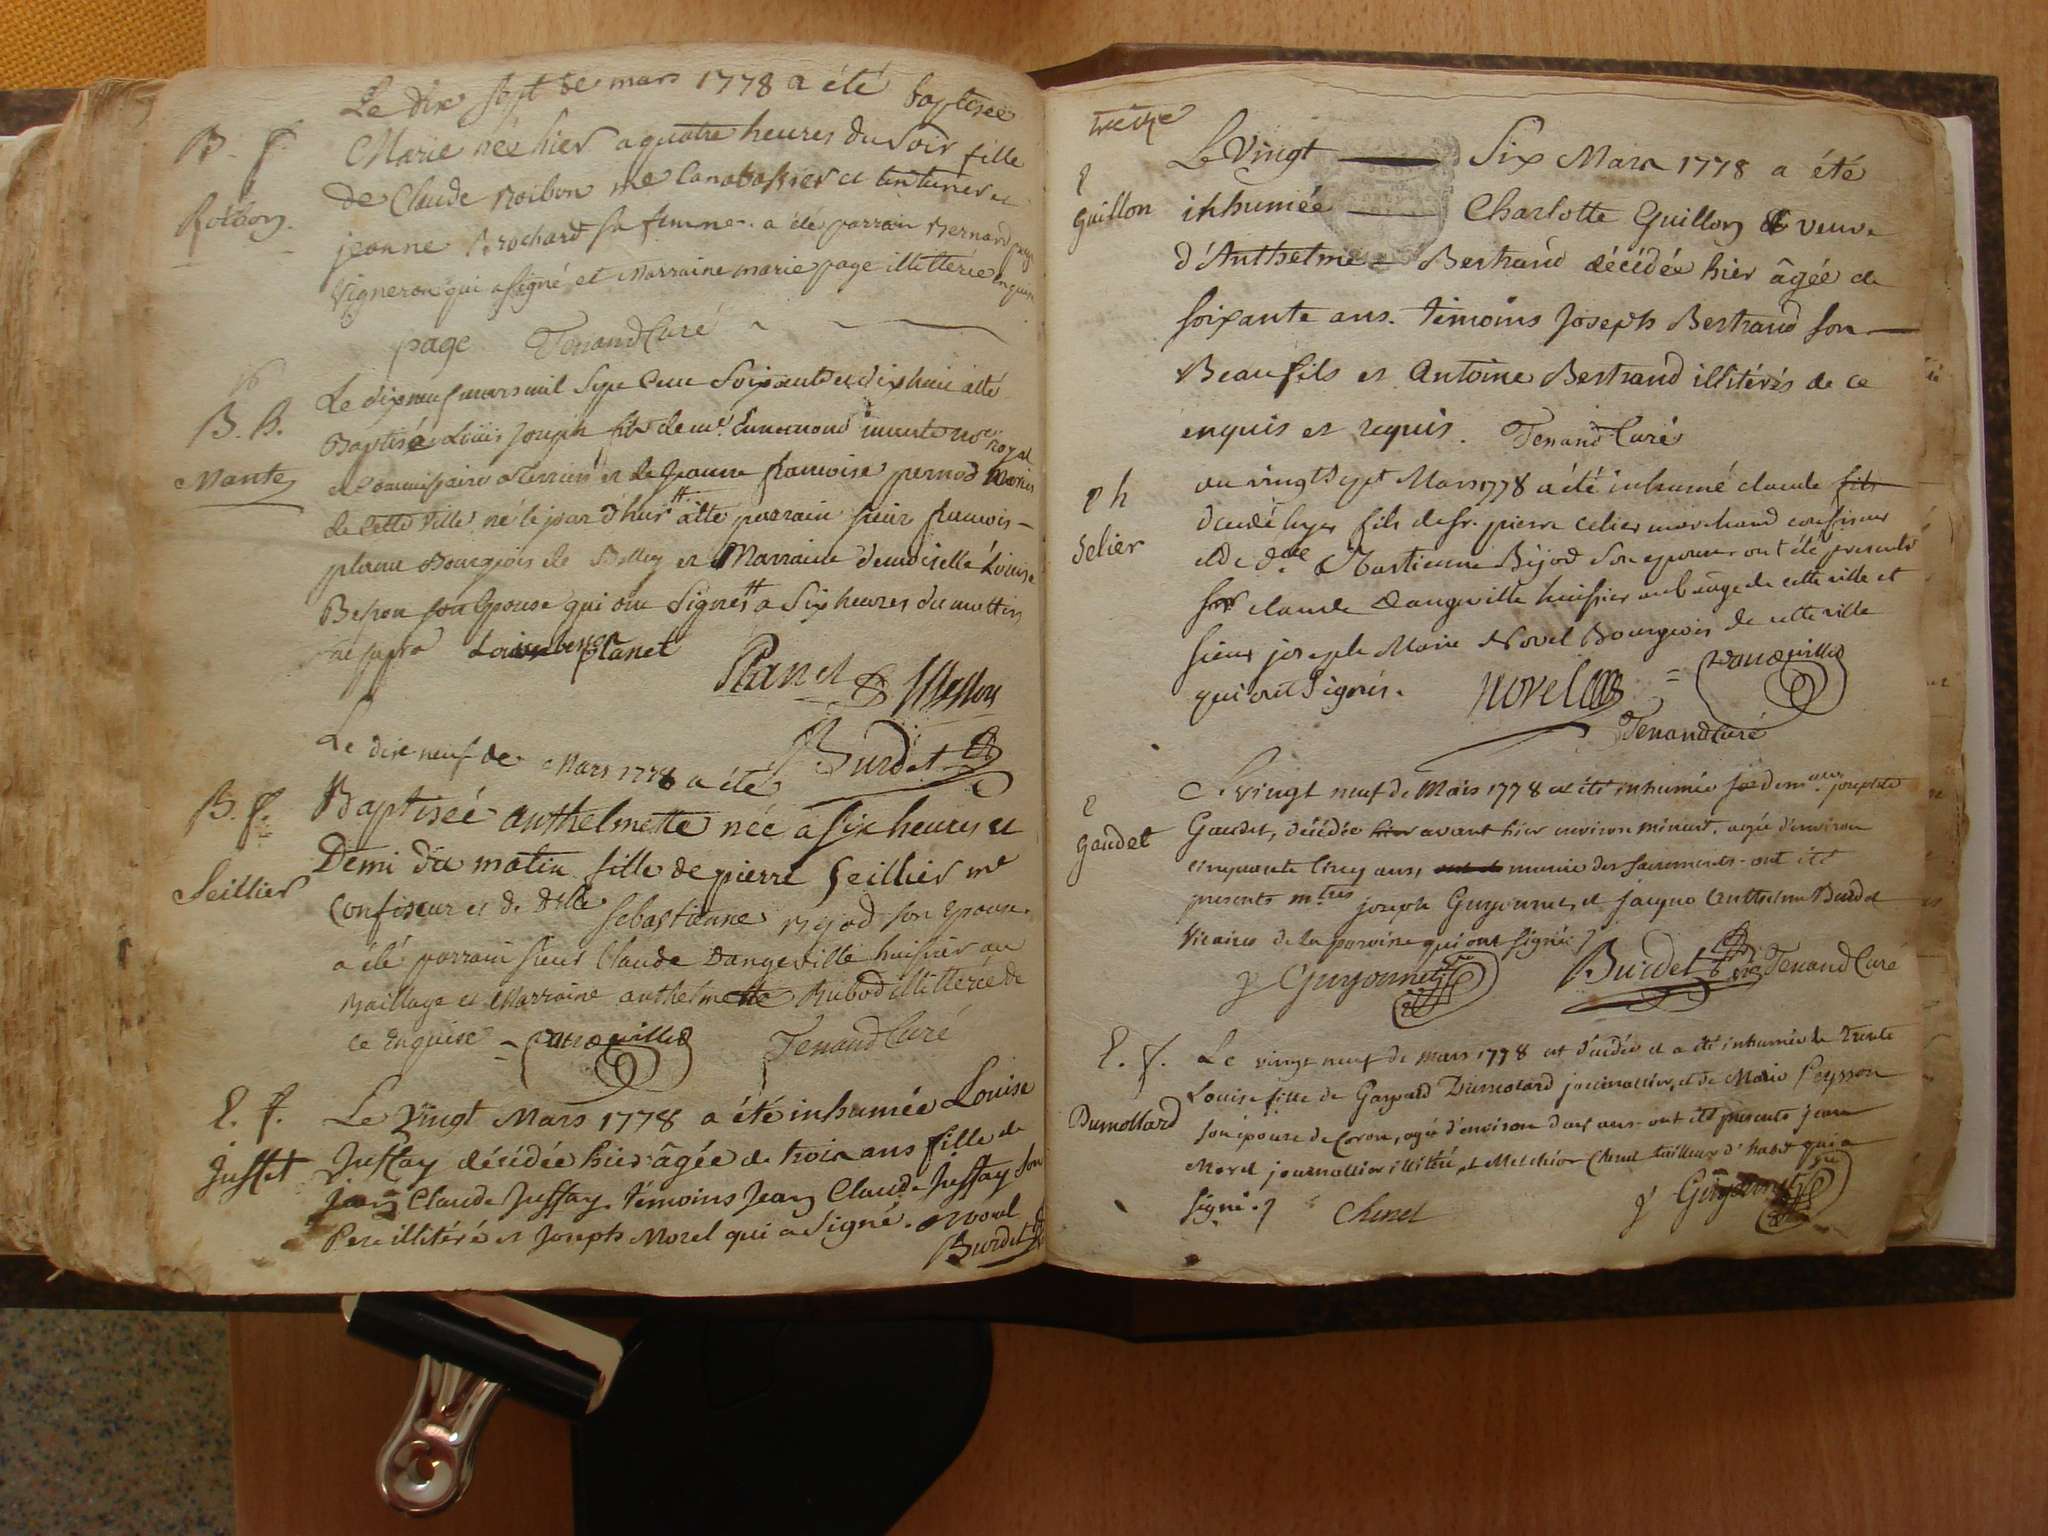 Le dix sept de mars 1778 a été baptisée
B. f.
Marie née hier a quatre heures du soir fille
de Claude Roibon me et
Roibon
jeanne Brochard sa femme. a été parrain Bernard page
vigneron qui a signé et Marraine marie page illitterée enquise
page Tenand Curé
Le dix neuf mars mil sept cent Soixante et dix huit a été
B. B.
Baptisé Louis Joseph fils de me. royal
Mante
et Commissaire a Terriers et de Jeanne francoise pernod Mariés
de cette ville né le jour d'hui a été parrain sieur francois
planet Bourgeois de Belley et Marraine demoiselle Louise
Besson son Epouse qui ont Signés a Six heures du mattin
Louise besson planet
Planet
Burdet
Le dix neuf de Mars 1778 a été
B. f.
Baptiseé anthelmette née a six heures et
Demi du matin fille de pierre Seillier me
Seillier
Confiseur et de dlle Sebastienne Bijod son Epouse.
a été parrain sieur Claude Dangeville huissier au
Baillage et Marraine anthelmette Rubod illitterée de
ce Enquise Dangeville Tenand Curé
E. f.
Le Vingt Mars 1778 a été inhumée Louise
Juffet
Juffay décédée hier âgée de trois ans fille de
jean Claude Juffay. témoins Jean Claude Juffay son
Pere illitéré et Joseph Morel qui a signé. Morel
Burdet
treize
Le Vingt Six Mars 1778 a été
E
Guillon
inhumée Charlotte Guillon veuve
d'Anthelme Bertrand décédée hier âgée de
soixante ans. témoins Joseph Bertrand son
Beaufils et Antoine Bertrand illitérés de ce
enquis et requis. Tenand Curé
E h
Selier
au vingt Sept Mars 1778 a été inhumé claude fils
décédé hyer fils de sr. pierre celier marchand confiseur
et de dlle Bastienne Bijod son epouse ont été presents
sr claude dangeville huissier au bailage de cette ville et
sieur joseph Marie Novel Bourgeois de cette ville
qui ont signés. Novel Dangeville
Tenand Curé
E
Gaudet
Le vingt neuf de Mars 1778 a été inhumée josephte
Gaudet, décédée hier avant hier environ minuit, agée d'environ
cinquante cinq ans, munie des sacrements. ont été
presents mtres joseph Guyonnet, et jacque Anthelme Burdet
vicaires de la paroisse qui ont signés
J Guyonnet vic Burdet vic Tenand Curé
E. f.
Dumollard
Le vingt neuf de mars 1778 est décédée et a été inhumée le trente
Louise fille de Gaspard Dumolard journallier, et de Marie Peysson
son épouse de Coron, agée d'environ deux ans. ont été presents jean
Morel journallier illitéré et Melchior Chenet tailleur d'habit qui a
signé. Chenet J Guyonnet vic